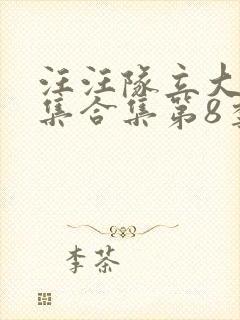 汪汪队立大
集合集第8季
李茶